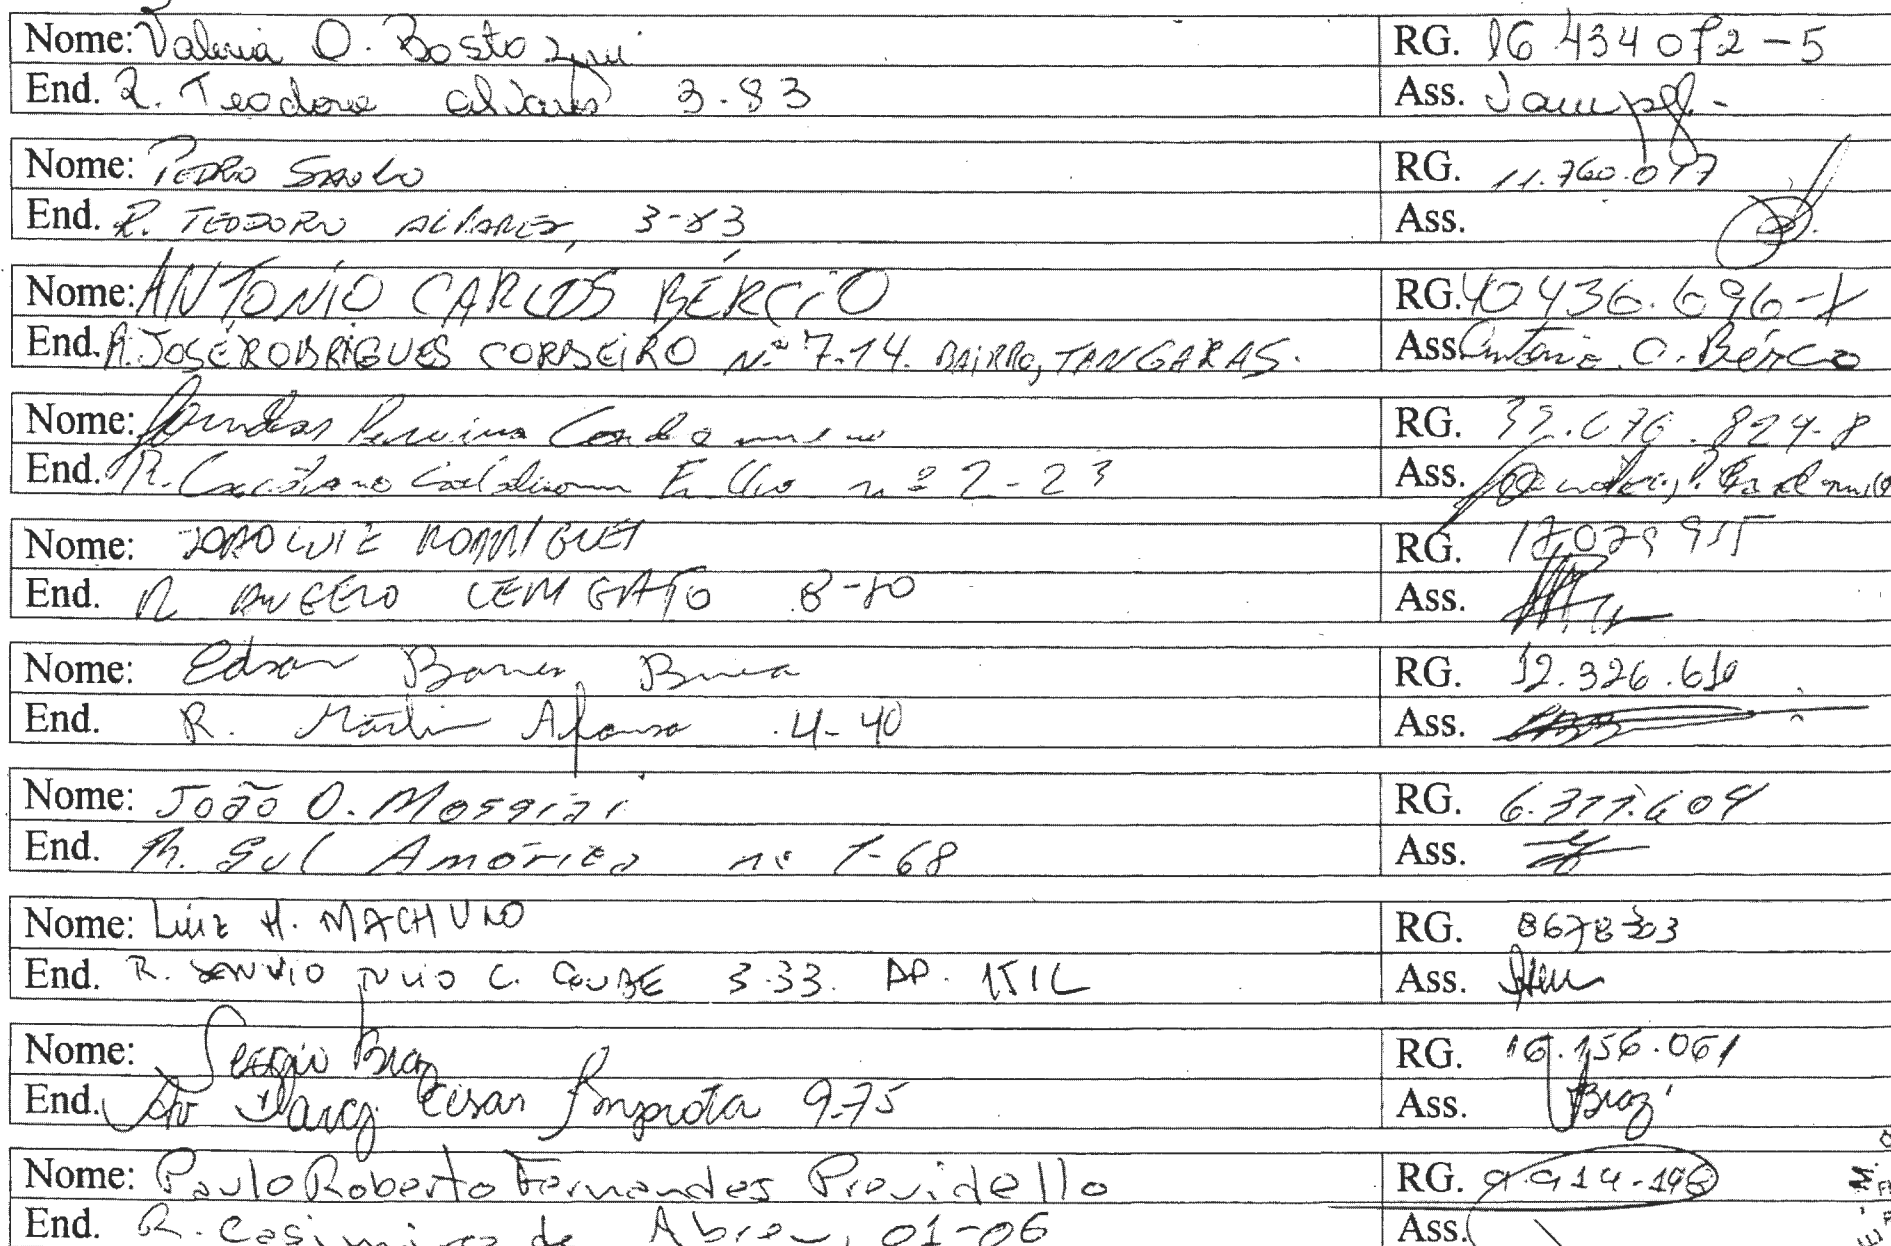 Nome: Valeria O. RG. 16 434 072-5
End. R. Teodoro Alvares 3-83 Ass.
Nome: PEDRO SAULO RG. 11.760.077
End. R. TEODORO ALVARES, 3-83 Ass.
Nome: ANTONIO CARLOS BÉRCIO RG. 40436.696-X
End. R. JOSÉ RODRIGUES CORDEIRO Nº 7-14. BAIRRO, TANGARAS. Ass. Antonio C. Bérco
Nome: Pereira RG. 32.676.824-8
End. R. nº 2-23 Ass.
Nome: JOAO LUIZ RODRIGUES RG. 17.079 955
End. R 8-80 Ass.
Nome: Edson RG. 12.326.610
End. R. Martin Afonso 4-40 Ass.
Nome: João O. RG. 6.377.604
End. R. Sul América nº 1-68 Ass.
Nome: Luiz H. MACHUNO RG. 8678303
End. R. C. 3-33. AP. Ass.
Nome: Sergio Braz RG. 16.156.061
End. Av Darcy César Improta 9-75 Ass. Braz
Nome: Paulo Roberto Fernandes Previdello RG. 9.914-196
End. R. Casimiro de Abreu, 01-06 Ass.